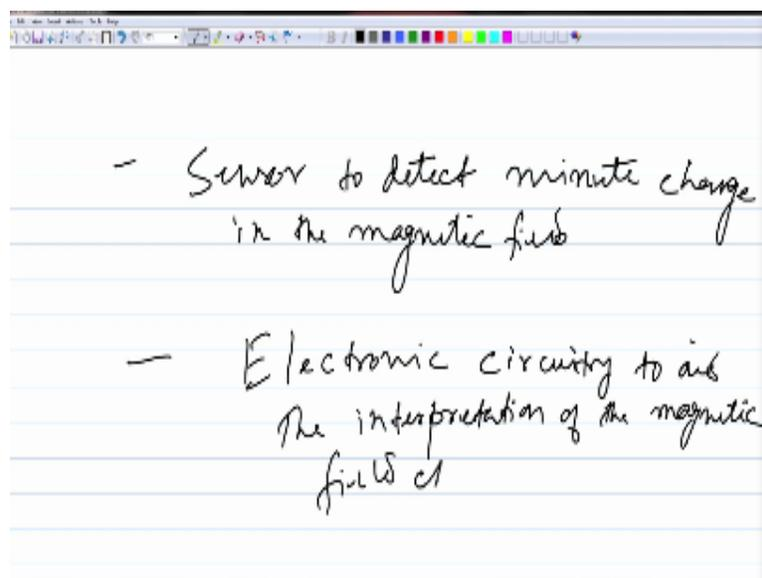 - Sensor to detect minute change
in the magnetic field
- Electronic circuitry to aid
the interpretation of the magnetic
field c